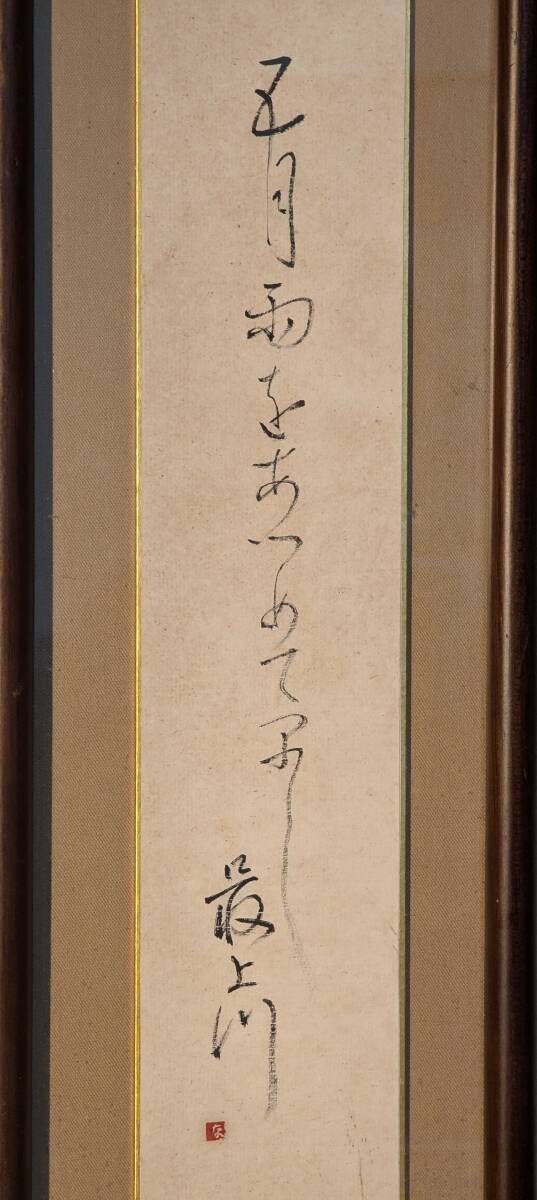 五月雨をあつめて早し
最上川